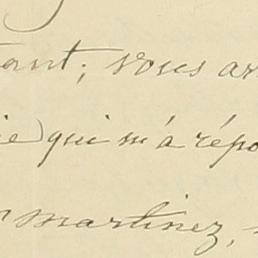 tant; vous ar
ie) qui m'a répo
Martinez,